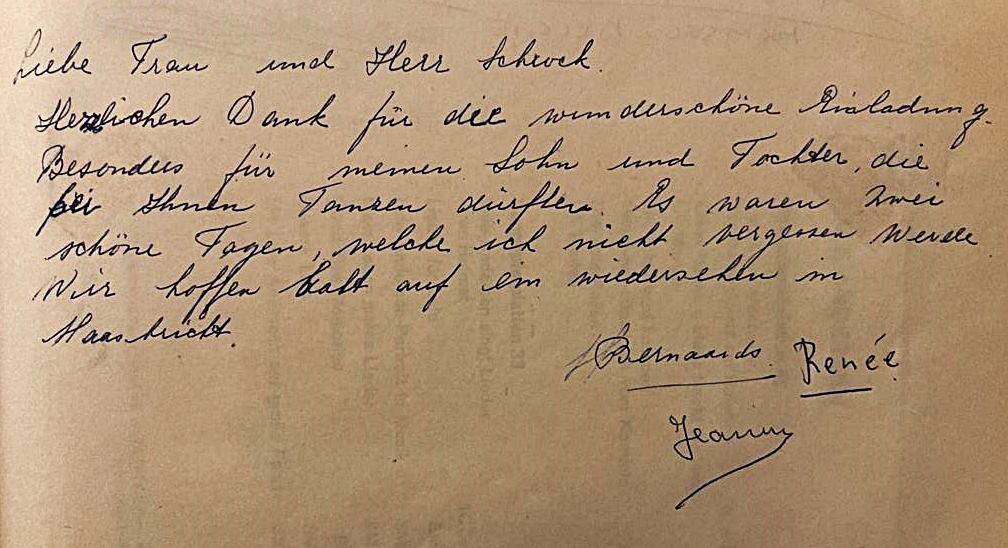 Liebe Frau und Herr Schrock.
Herzlichen Dank für die wunderschöne Einladung.
Besonders für meinen Sohn und Tochter, die
bei Ihnen Tanzen dürften. Es waren zwei
schöne Tagen, welche ich nicht vergessen werde
Wir hoffen balt auf ein wiedersehen in
Maastricht.
Bernaards. Renée.